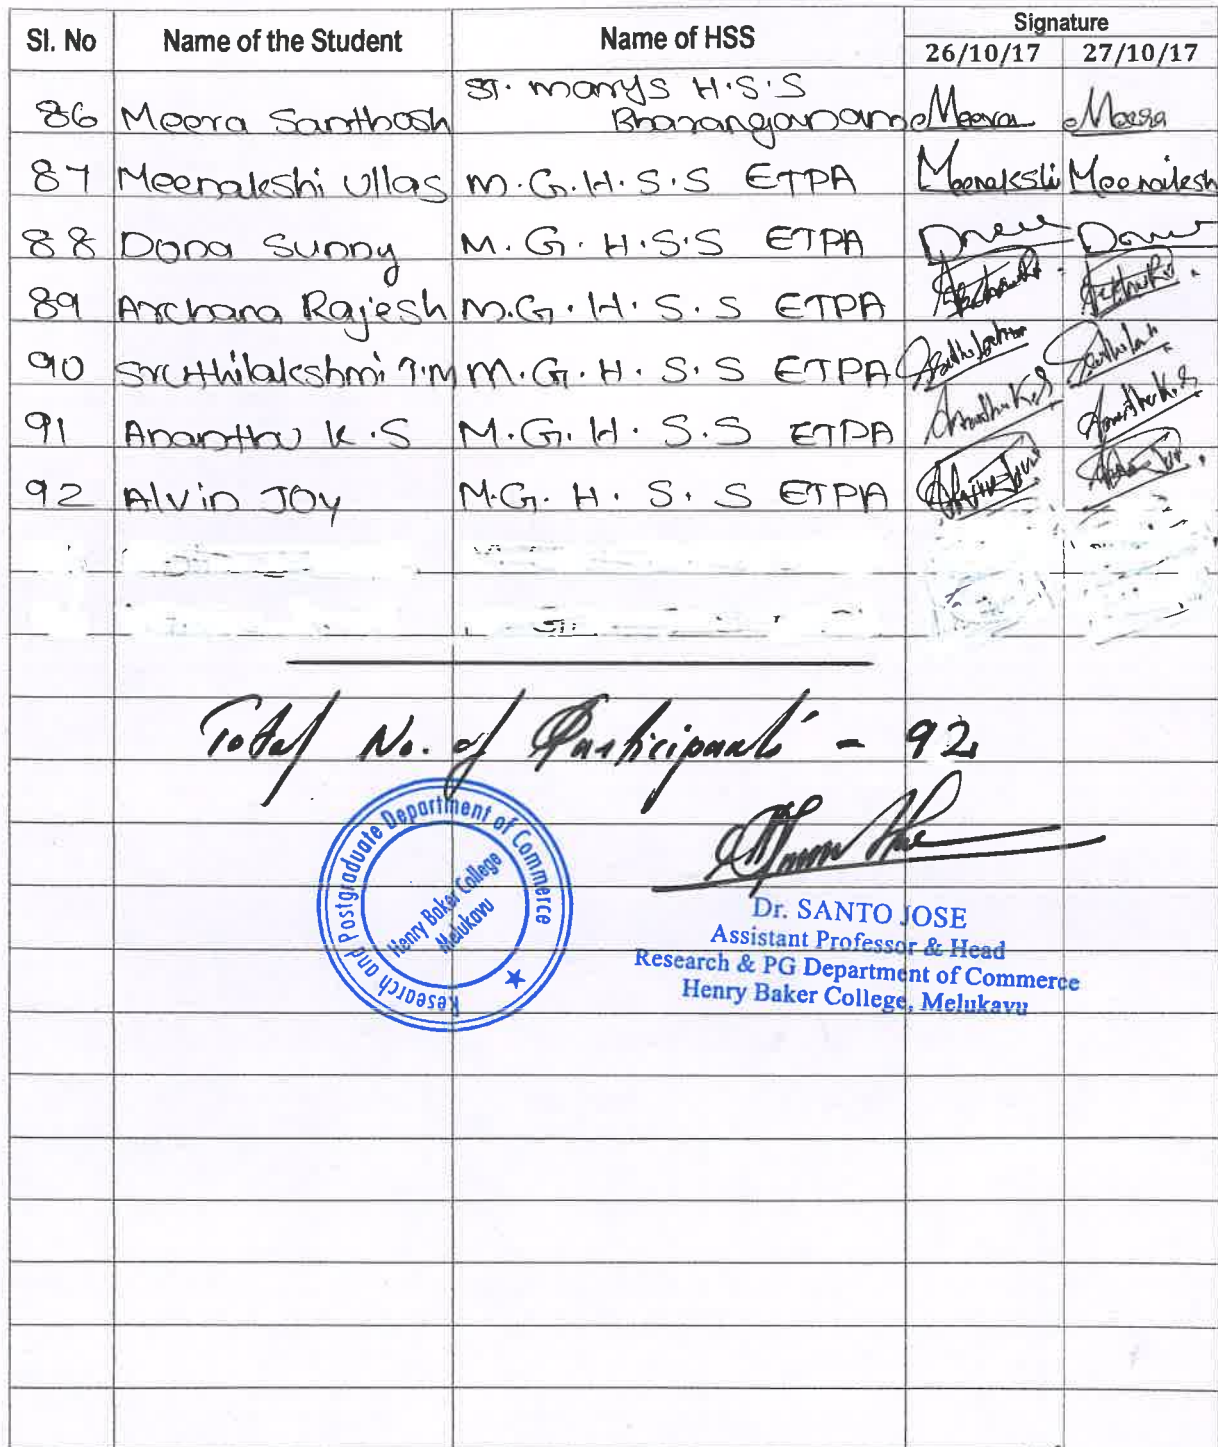 Sl. No Name of the Student Name of HSS Signature
26/10/17 27/10/17
86 Meera Santhosh St. marys H.S.S Bharanganam Meera Meera
87 Meenakshi Ullas M.G.H.S.S ETPA Meenakshi Meenakshi
88 Dona Sunny M.G.H.S.S ETPA Dona
89 Archana Rajesh M.G.H.S.S ETPA
90 Sruthilakshmi T.M M.G.H.S.S ETPA
91 Ananthu K.S M.G.H.S.S ETPA Ananthu K.S Ananthu K.S
92 Alvin JOY M.G.H.S.S ETPA
Total No. of Participants - 92
Research and Postgraduate Department of Commerce
Henry Baker College
Melukavu
Dr. SANTO JOSE
Assistant Professor & Head
Research & PG Department of Commerce
Henry Baker College, Melukavu